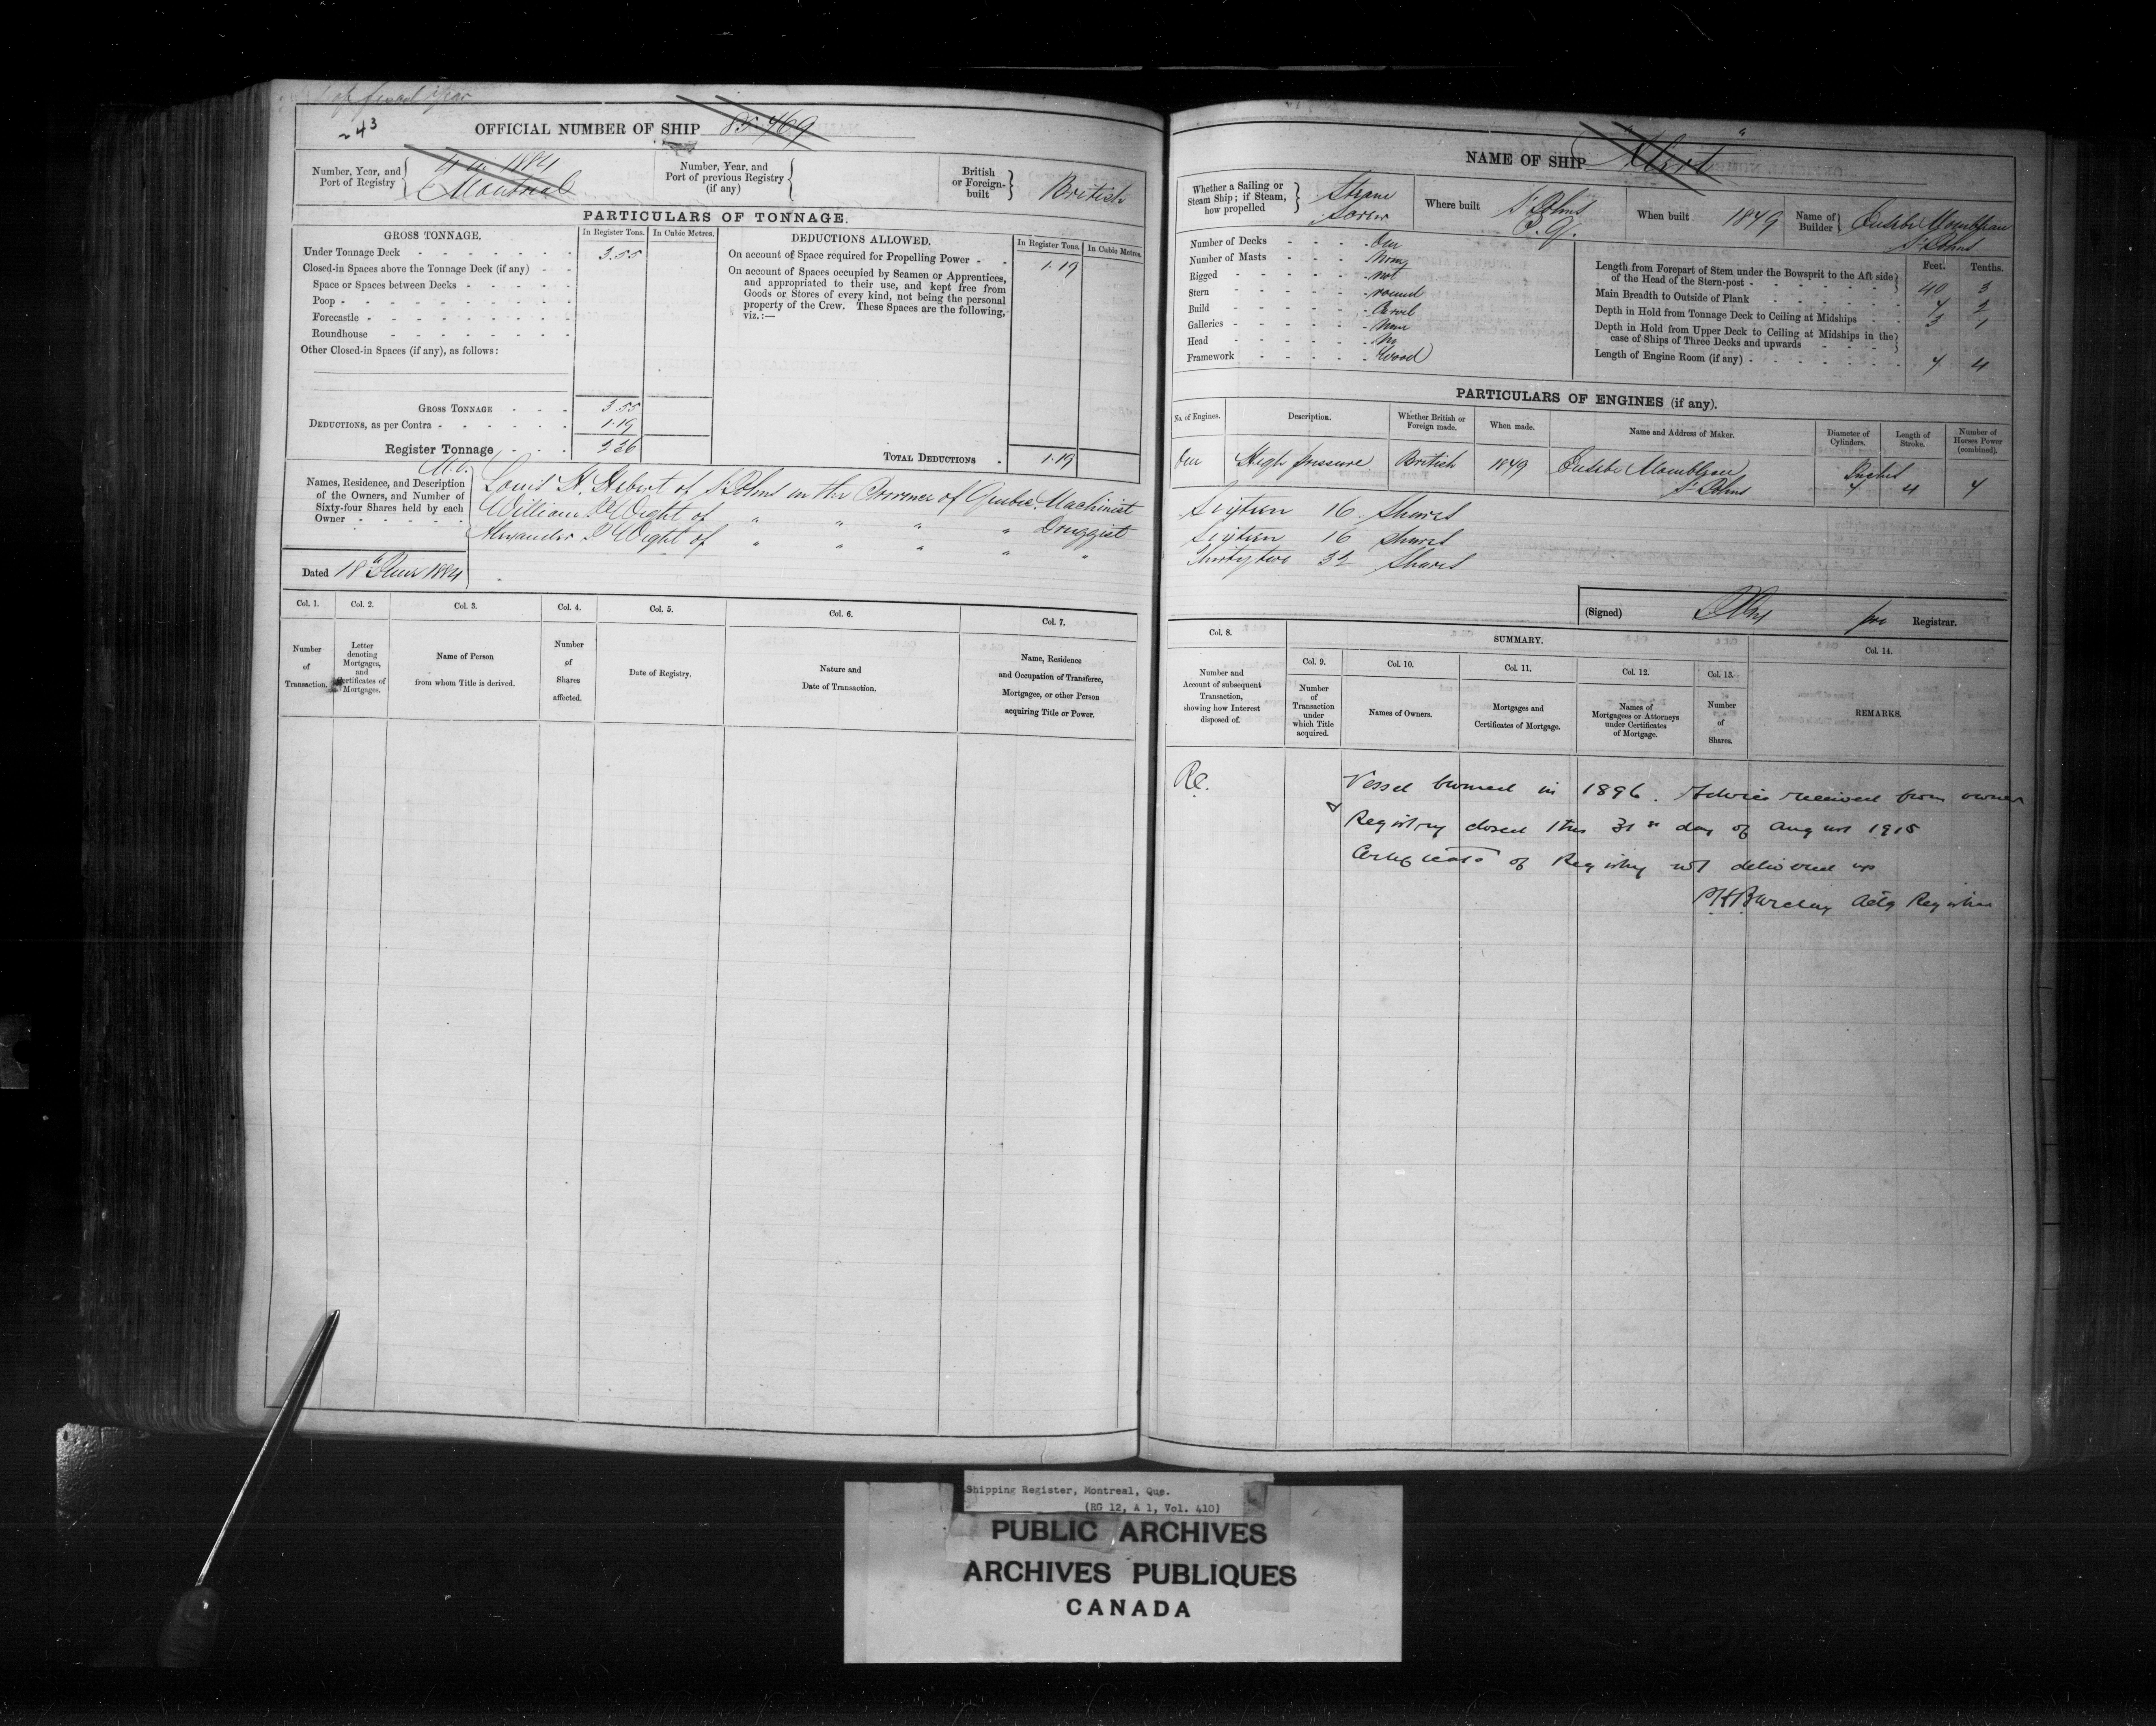 43
OFFICIAL NUMBER OF SHIP 85.469
Number, Year, and Port of Registry
1884
Montreal
Number, Year, and Port of previous Registry (if any)
British or Foreign-built
British
PARTICULARS OF TONNAGE.
GROSS TONNAGE.
In Register Tons.
In Cubic Metres.
DEDUCTIONS ALLOWED.
In Register Tons.
In Cubic Metres.
Under Tonnage Deck 3.55
Closed-in Spaces above the Tonnage Deck (if any)
Space or Spaces between Decks
Poop
Forecastle
Roundhouse
Other Closed-in Spaces (if any), as follows:
On account of Space required for Propelling Power 1.19
On account of Spaces occupied by Seamen or Apprentices,
and appropriated to their use, and kept free from
Goods or Stores of every kind, not being the personal
property of the Crew. These Spaces are the following,
viz.:—
GROSS TONNAGE 3.55
DEDUCTIONS, as per Contra 1.19
Register Tonnage 2.36
TOTAL DEDUCTIONS 1.19
Names, Residence, and Description
of the Owners, and Number of
Sixty-four Shares held by each
Owner
Louis H. Hebert of St Johns in the Province of Quebec Machinist
William Wight of " " " " Druggist
Alexander Wight of " " " " "
Dated 18th June 1884
Col. 1.
Col. 2.
Col. 3.
Col. 4.
Col. 5.
Col. 6.
Col. 7.
Number of Transaction.
Letter denoting Mortgages, and Certificates of Mortgages.
Name of Person from whom Title is derived.
Number of Shares affected.
Date of Registry.
Nature and Date of Transaction.
Name, Residence and Occupation of Transferee, Mortgagee, or other Person acquiring Title or Power.
NAME OF SHIP "Alert"
Whether a Sailing or Steam Ship; if Steam, how propelled
Steam
Screw
Where built
St Johns
P.Q.
When built 1879
Name of Builder
Eusebe
St Johns
Number of Decks One
Number of Masts None
Rigged not
Stern round
Build Carvel
Galleries None
Head No
Framework Wood
Feet.
Tenths.
Length from Forepart of Stem under the Bowsprit to the Aft side
of the Head of the Stern-post 40 3
Main Breadth to Outside of Plank 7 2
Depth in Hold from Tonnage Deck to Ceiling at Midships 3 1
Depth in Hold from Upper Deck to Ceiling at Midships in the
case of Ships of Three Decks and upwards
Length of Engine Room (if any) 7 4
PARTICULARS OF ENGINES (if any).
No. of Engines.
Description.
Whether British or Foreign made.
When made.
Name and Address of Maker.
Diameter of Cylinders.
Length of Stroke.
Number of Horses Power (combined).
One
High pressure
British
1879
Eusebe
St Johns
Inches
7
4
7
Sixteen 16 Shares
Sixteen 16 Shares
Thirty two 32 Shares
(Signed) pro Registrar.
Col. 8.
SUMMARY.
Col. 14.
Col. 9.
Col. 10.
Col. 11.
Col. 12.
Col. 13.
Number and Account of subsequent Transaction, showing how Interest disposed of.
Number of Transaction under which Title acquired.
Names of Owners.
Mortgages and Certificates of Mortgage.
Names of Mortgagees or Attorneys under Certificates of Mortgage.
Number of Shares.
REMARKS.
Re.
Vessel burned in 1896. Advice received from owner
Registry closed this 31st day of August 1915
Certificate of Registry not delivered up
Barclay Actg Registrar
Shipping Register, Montreal, Que.
(RG 12, A 1, Vol. 410)
PUBLIC ARCHIVES
ARCHIVES PUBLIQUES
CANADA